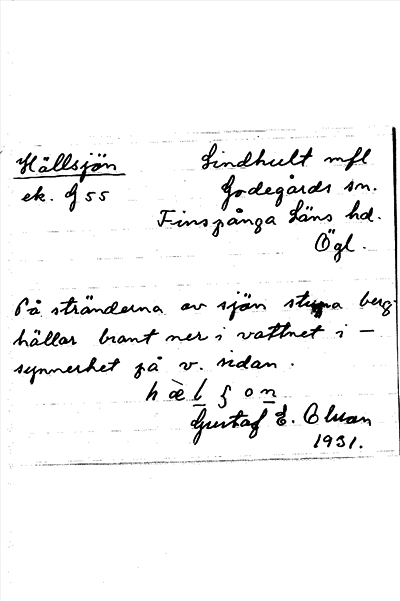 Hällsjön
ek. G 55
Lindhult mfl
Godegårds sn.
Finspånga Läns hd.
Ögl.
På stränderna av sjön stupa berg-
hällar brant ner i vattnet i –
synnerhet på v. sidan.
hæ̀lʃon
Gustaf E. Olsson
1931.